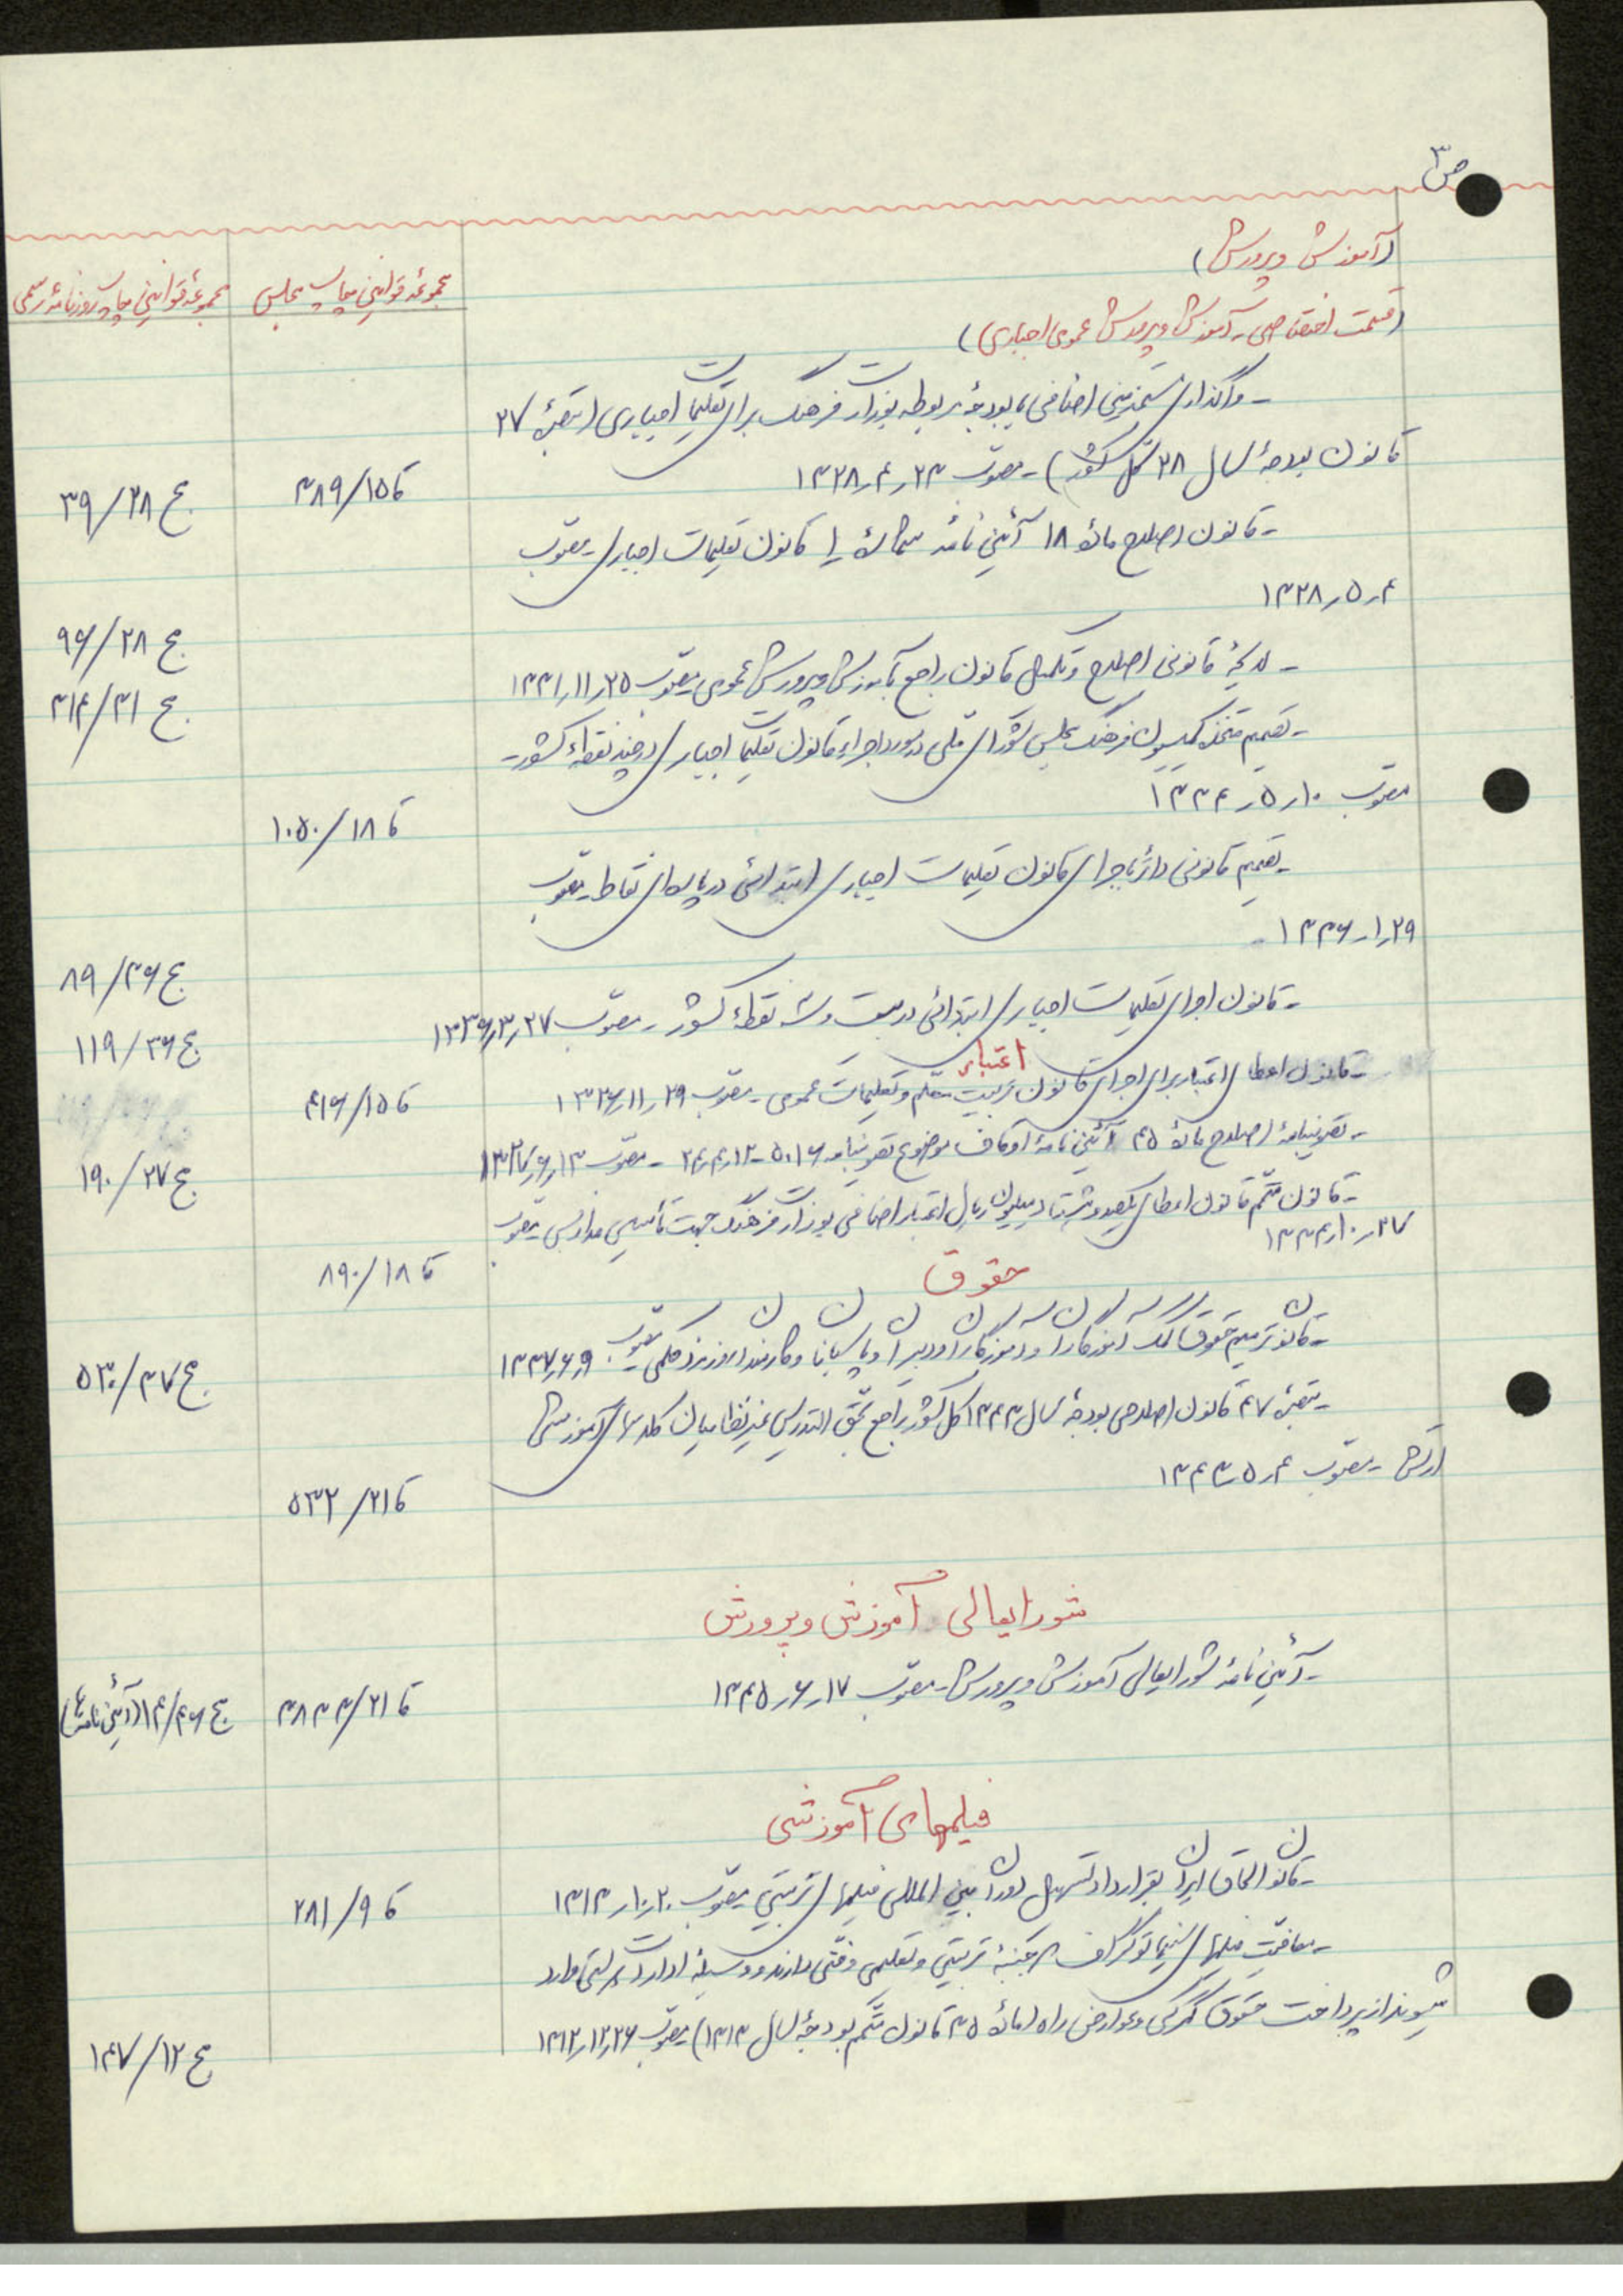 ص ۳
(آموزش و پرورش)
مجموعه قوانین چاپ مجلس
مجموعه قوانین چاپ روزنامه رسمی
(قسمت اختصاصی ـ آموزش و پرورش عمومی اجباری)
ـ واگذاری اضافی بودجه مربوطه بوزارت فرهنگ برای تعلیمات اجباری (تبصره ۲۷
قانون بودجه سال ۲۸ کل کشور) ـ مصوب ۲۳ر۴ر۱۳۲۸
ق ۱۵/۳۸۹
ج ۲۸/۳۹
ـ قانون اصلاح ماده ۱۸ آئین نامه شماره ۱ قانون تعلیمات اجباری ـ مصوب
۴ر۵ر۱۳۲۸
ج ۲۸/۹۶
ـ لایحه قانونی اصلاح و تکمیل قانون راجع بآموزش و پرورش عمومی مصوب ۲۵ر۱۱ر۱۳۳۱
ج ۳۱/۳۱۴
ـ تصمیم متخذه کمیسیون فرهنگ مجلس شورای ملی در مورد اجراء قانون تعلیمات اجباری در چند نقطه کشور ـ
مصوب ۱۰ر۵ر۱۳۳۴
ق ۱۸/۱۰۵۰
ـ تصمیم قانونی دائر باجرای قانون تعلیمات اجباری ابتدائی در پاره‌ای نقاط ـ مصوب
۲۹ر۱ر۱۳۳۶
ج ۳۶/۸۹
ـ قانون اجرای تعلیمات اجباری ابتدائی در بیست و سه نقطه کشور ـ مصوب ۲۷ر۳ر۱۳۳۶
ج ۳۶/۱۱۹
اعتبار
ـ قانون اعطای اعتبار برای اجرای قانون تربیت معلم و تعلیمات عمومی ـ مصوب ۲۹ر۱۱ر۱۳۲۶
ق ۱۵/۴۱۶
ـ تصویبنامه اصلاح ماده ۴۵ آئین نامه اوقاف موضوع تصویبنامه ۵۰۱۶ ـ ۱۲ر۴ر۲۴ ـ مصوب ۱۳ر۶ر۱۳۲۷
ج ۲۷/۱۹۰
ـ قانون متمم قانون اعطای یکصد و هشتاد میلیون ریال اعتبار اضافی بوزارت فرهنگ جهت تأسیس مدارس ـ مصوب
۲۷ر۱۰ر۱۳۳۴
ق ۱۸/۸۹۰
حقوق
ـ قانون ترمیم حقوق کمک آموزگاران و آموزگاران و دبیران و پاسبانان و کارمندان روزمزد حکمی مصوب ۹ر۶ر۱۳۳۷
ج ۳۷/۵۳۰
ـ تبصره ۴۷ قانون اصلاحی بودجه سال ۱۳۴۳ کل کشور راجع بحق التدریس غیرنظامیان کلاسهای آموزشی
ارتش ـ مصوب ۴ر۵ر۱۳۴۳
ق ۲۱/۵۳۲
شورایعالی آموزش و پرورش
ـ آئین نامه شورایعالی آموزش و پرورش ـ مصوب ۱۷ر۶ر۱۳۴۵
ق ۲۱/۳۸۳۳
ج ۴۶/۱۴ (آئین نامه‌ها)
فیلمهای آموزشی
ـ قانون الحاق ایران بقرارداد تسهیل دوران بین المللی فیلمهای تربیتی مصوب ۲۰ر۱۰ر۱۳۱۳
ق ۹/۲۸۱
ـ معافیت فیلمهای سینماتوگراف که جنبه تربیتی و تعلیمی و فنی دارند و وسیله ادارات دولتی وارد
میشوند از پرداخت حقوق گمرکی و عوارض راه (ماده ۳۵ قانون متمم بودجه سال ۱۳۱۳) مصوب ۲۶ر۱۲ر۱۳۱۲
ج ۱۲/۱۴۷